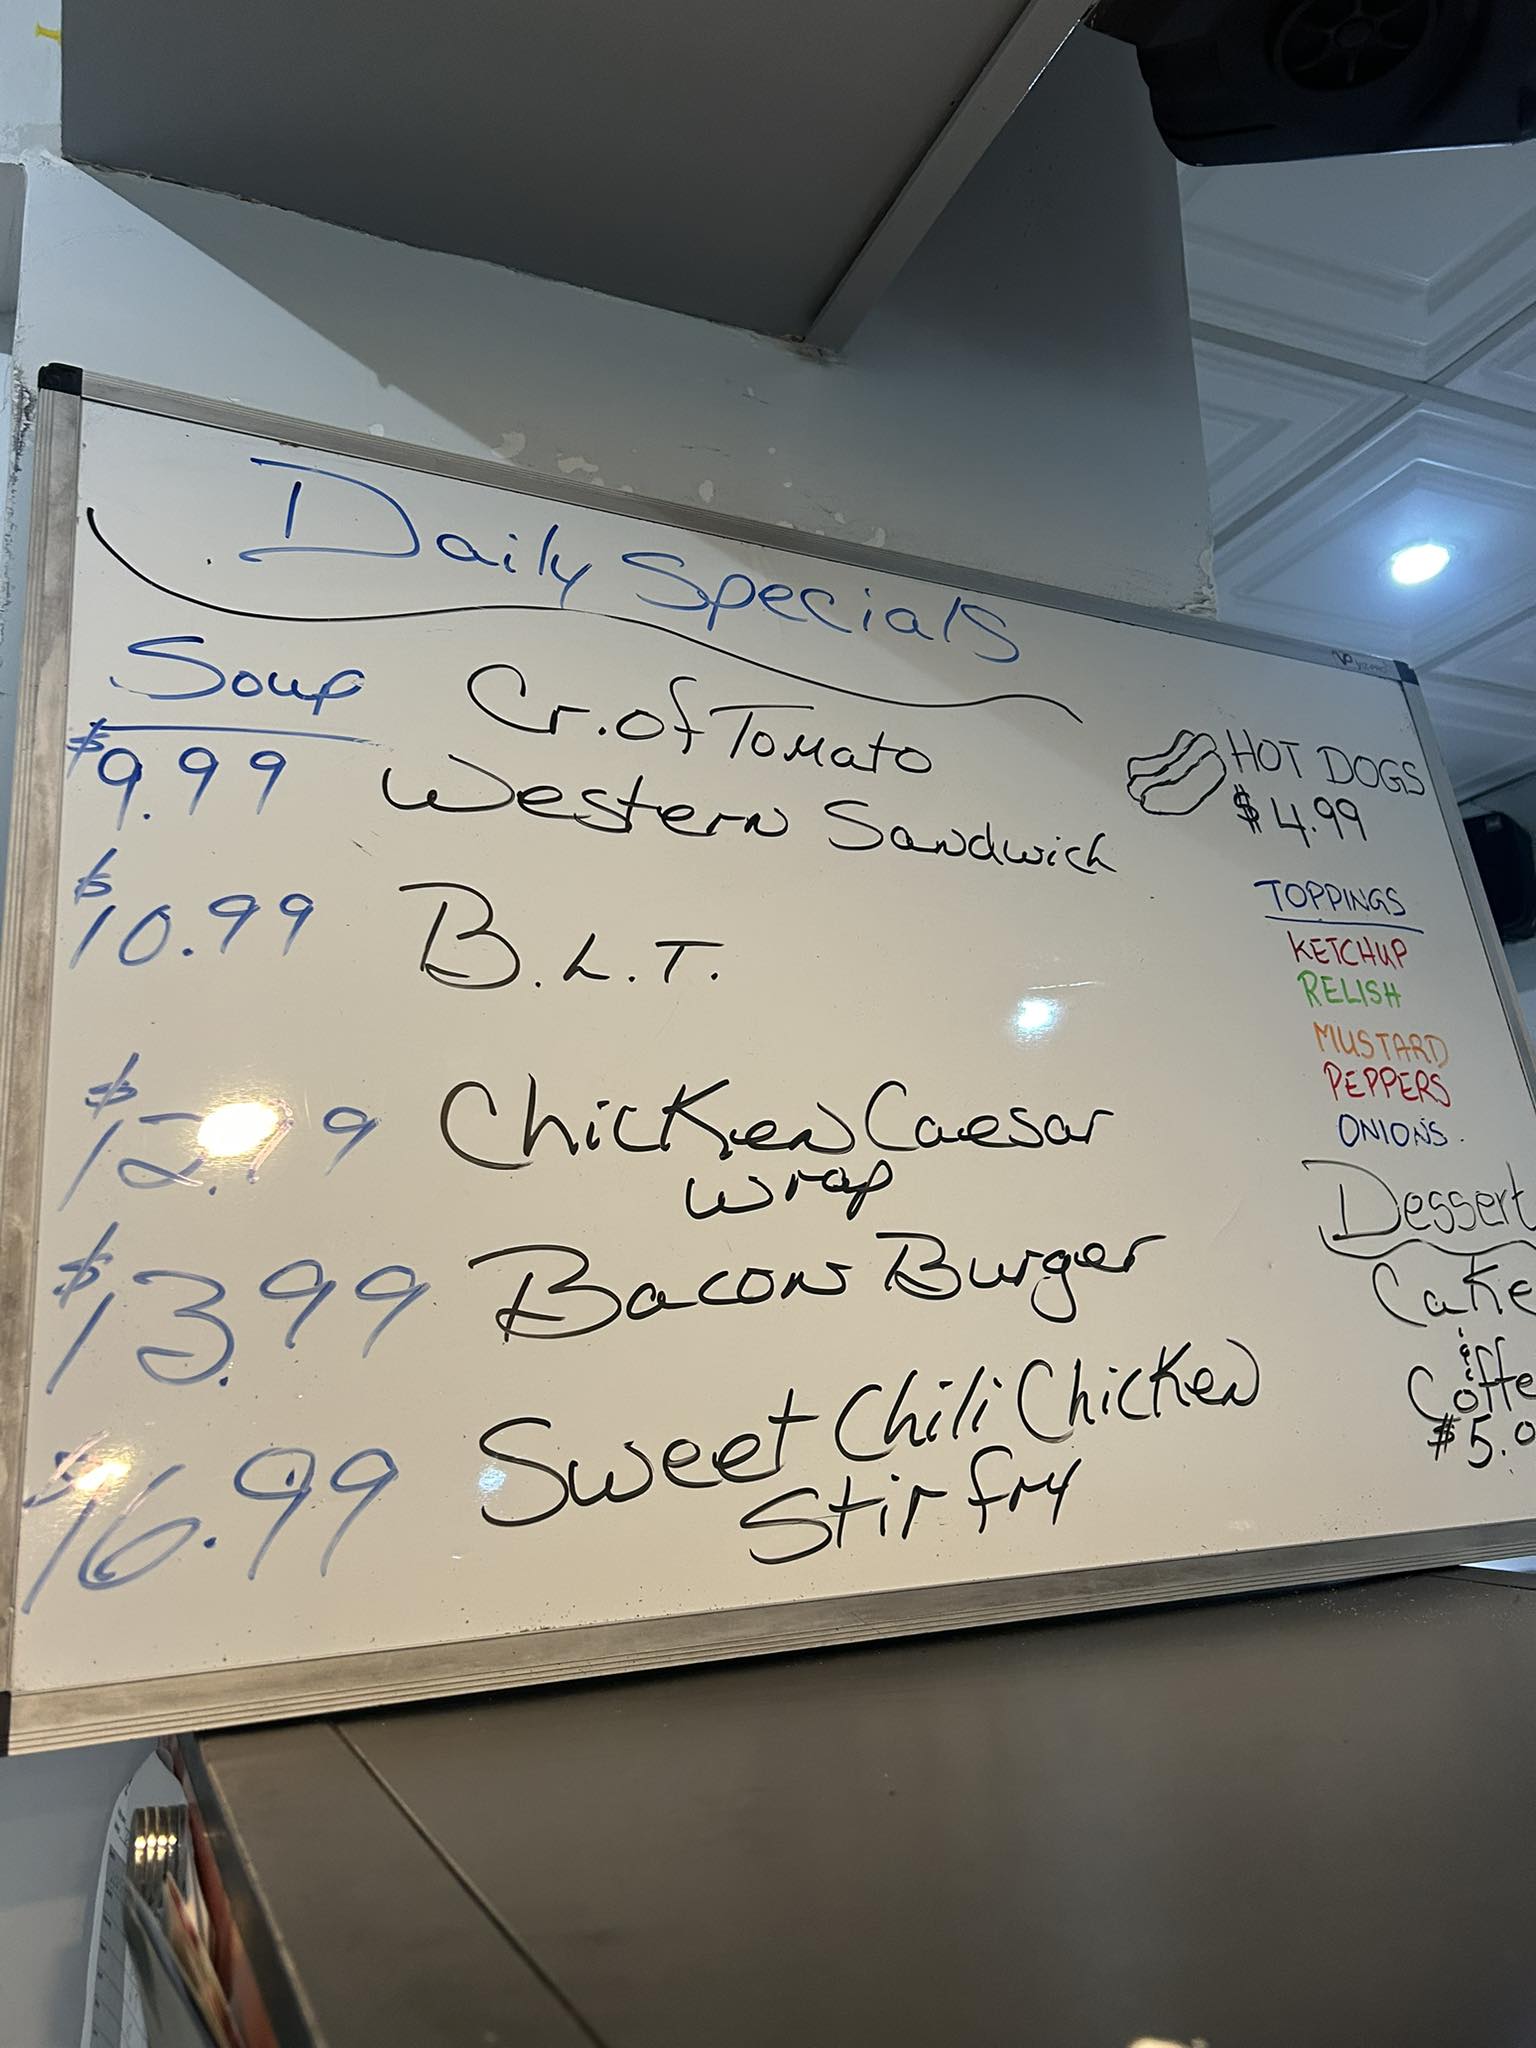 Daily Specials
Soup Cr. of Tomato
$9.99 Western Sandwich
$10.99 B.L.T.
Chicken Caesar
wrap
$13.99 Bacon Burger
$16.99 Sweet Chili Chicken
Stir fry
HOT DOGS
$4.99
TOPPINGS
KETCHUP
RELISH
MUSTARD
PEPPERS
ONIONS.
Dessert
Cake
&
Coffe
$5.0